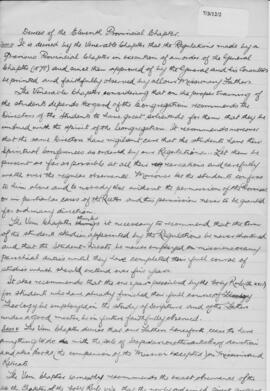 7/3/12/2
Decrees of the Eleventh Provincial Chapter.
It is desired by the Venerable Chapter that the Regulations made by a
Previous Provincial Chapter in execution of an order of the General
Chapter and since then approved of by the General and his Consultors
be printed and faithfully observed by all our Missionary Fathers.
The Venerable Chapter considering that on the proper training of
the students depends the good of the Congregation recommends the
Directors of the students to have great solicitude for them that they be
imbued with the spirit of the Congregation. It recommends moreover
that the same Directors be vigilant that the students have their
spiritual conferences as ordered by our Regulations. Let them be
present as far as possible at all their recreations and carefully
watch over the regular observance. Moreover let the students confess
to him alone and to nobody else without the permission of the Provincial
or in particular cases of the Rector and this permission never to be granted
for ordinary direction.
The Ven Chapter thinks it necessary to recommend that the term
of the student studies prescribed by the Regulations be never shortened
and that the Student Priests be never employed on missionary or
parochial duties until they have completed their full course of
studies which should extend over five years.
It also recommends that the one year prescribed by the Holy Rule
for students who have already finished their full course of
Theology be employed in the study of Scripture and of the Fathers
under a good master be in future faithfully observed.
The Ven Chapter desires that our Fathers henceforth cease to have
anything to do with the sale of scapulars or other articles of devotion
and also forbids the companion of the Missioner except for Missions and
Retreats.
The Ven Chapter earnestly recommends the exact observance of